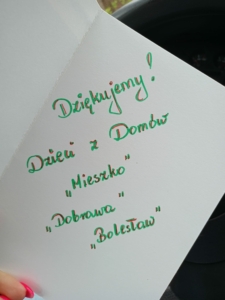 Dziękujemy!
Dzieci z Domów
„Mieszko"
„Dobrawa"
„Bolesław"